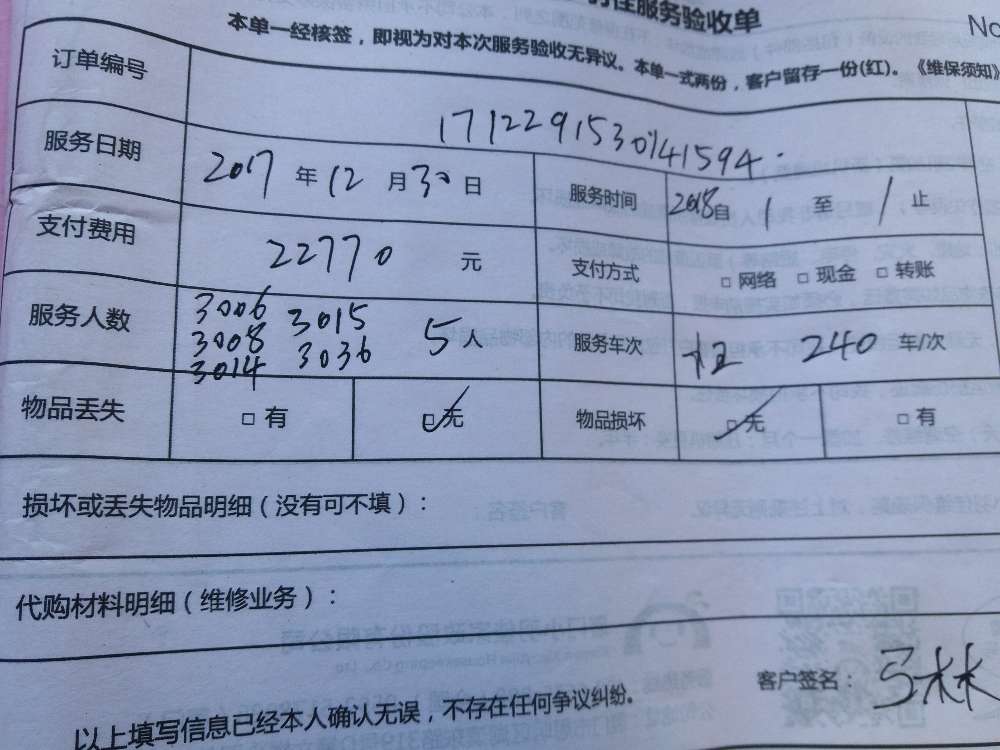 服务验收单
No
本单一经核签，即视为对本次服务验收无异议。本单一式两份，客户留存一份(红)。《维保须知》
订单编号 1712291530141594
服务日期 2017 年 12 月 30 日 服务时间 2018自 1 至 1 止
支付费用 22770 元 支付方式 □ 网络 □ 现金 □ 转账
服务人数 3006 3015 5人 服务车次 240 车/次
3008 3036
3014
物品丢失 □ 有 □ 无 物品损坏 □ 无 □ 有
损坏或丢失物品明细（没有可不填）：
代购材料明细（维修业务）：
客户签名：
以上填写信息已经本人确认无误，不存在任何争议纠纷。